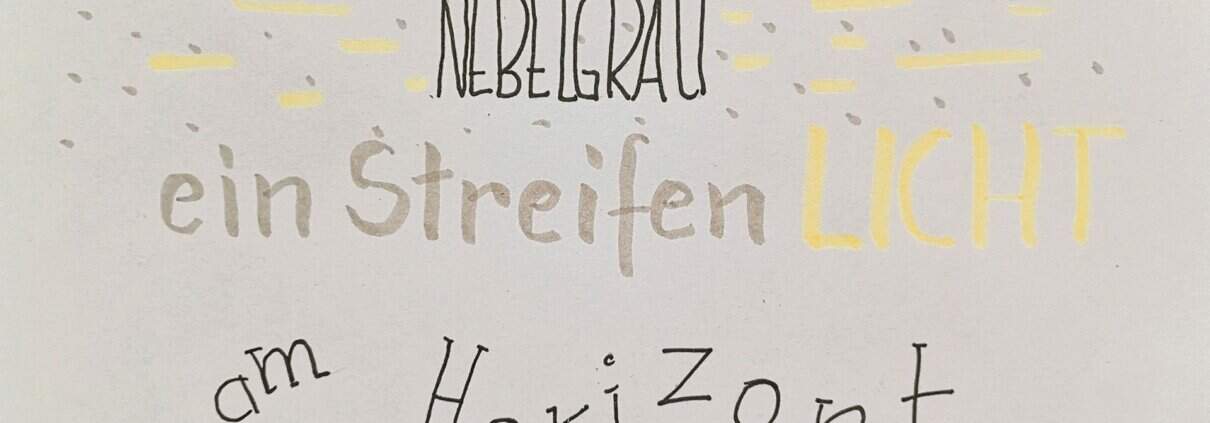 NEBELGRAU
ein Streifen LICHT
am Horizont